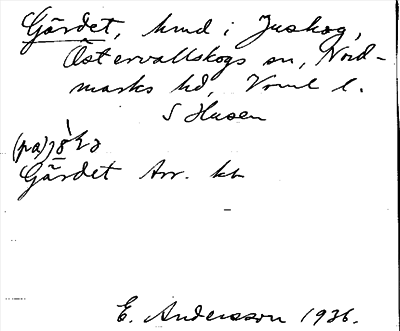 Gärdet, hmd i Juskog,
Östervallskogs sn, Nord-
marks hd, Vrml l.
S Husen
(pa)
Gärdet Arr. kb
E. Andersson 1936.